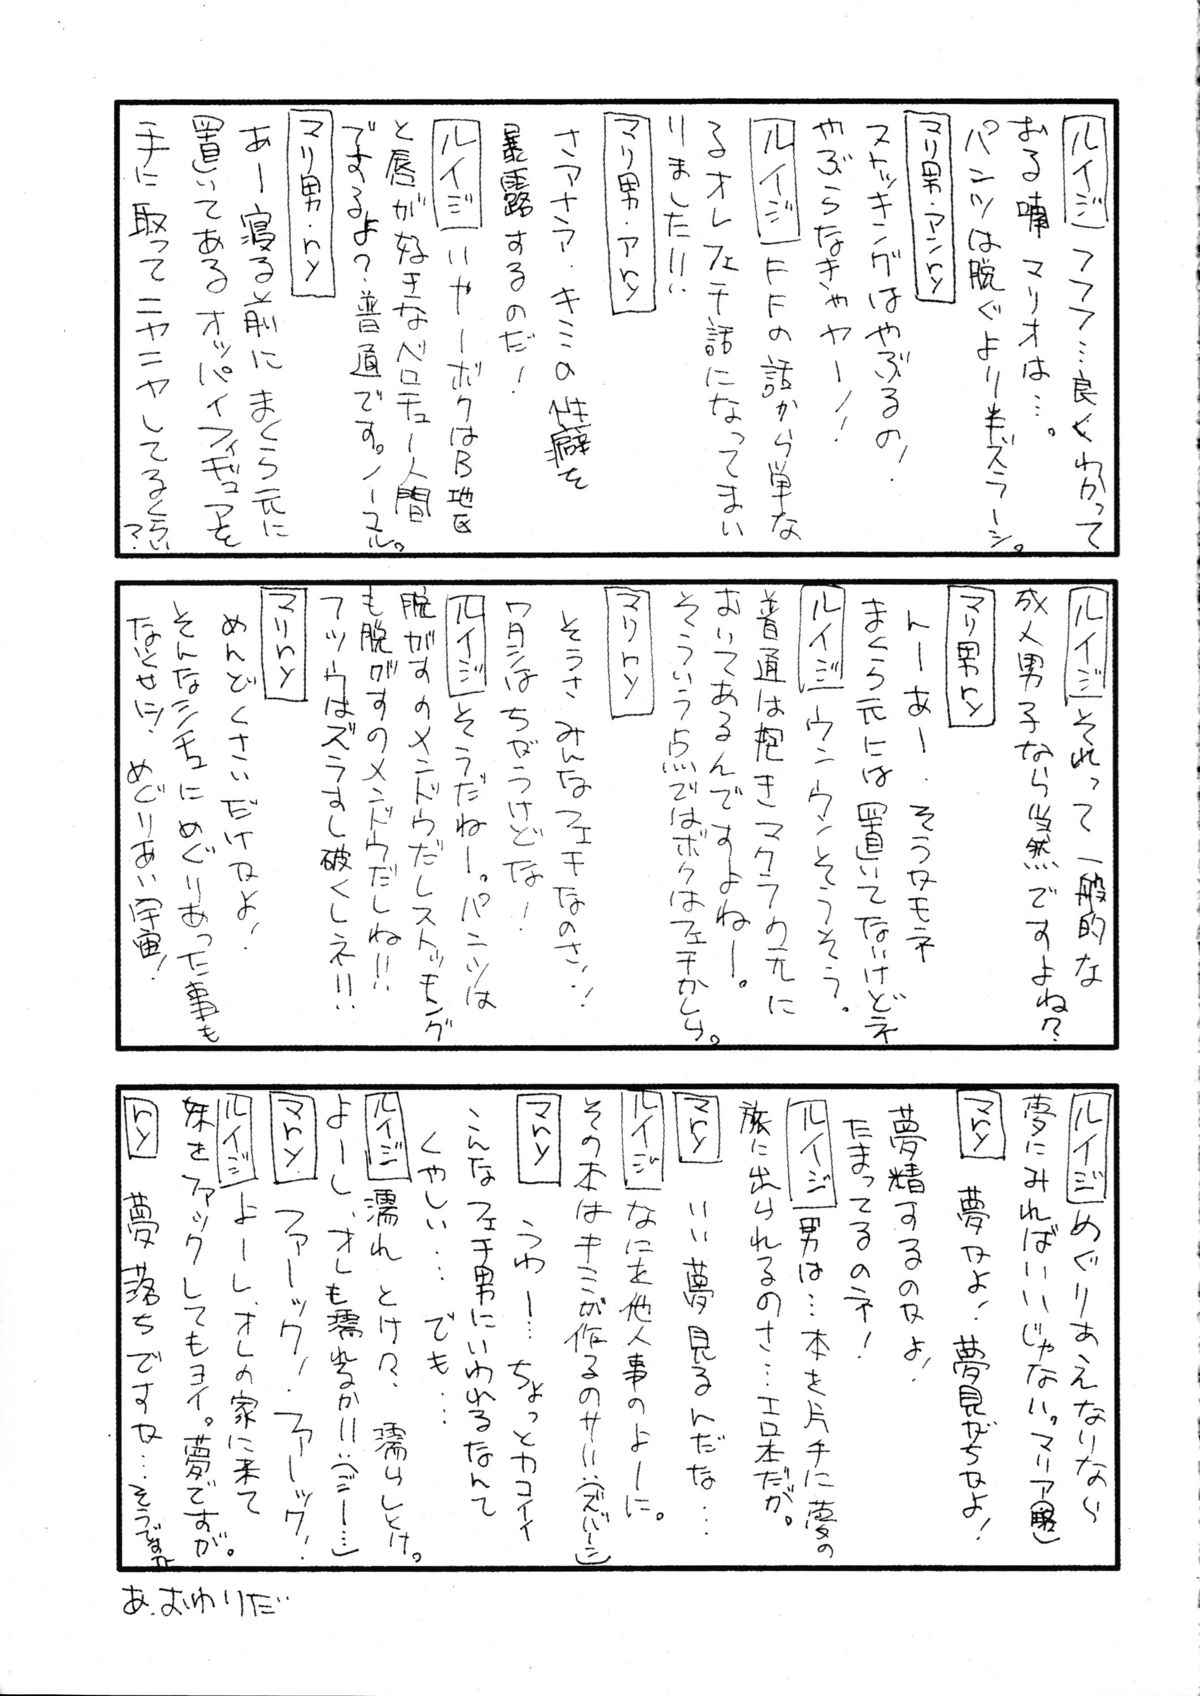 ルイジ フフフ…良くわかって
おる喃 マリオは…。
パンツは脱ぐより半ズラーシ。
マリ男・アンry
ストッキングはやぶるの!
やぶらなきゃヤー!!
ルイジ FFの話から単な
るオレフェチ話になってまい
りました!!
マリ男・アry
さアナタ・キミの性癖を
暴露するのだ!
ルイジ いやーボクはB地区
と唇が好きなベロチュー人間
ですよ?普通です。ノーマル。
マリ男・ry
あー寝る前にまくら元に
置いてあるオッパイフィギュアを
手に取ってニヤニヤしてるくらい
?
ルイジ それって一般的な
成人男子なら当然ですよね?
マリ男ry
んーあー、そうなモネ
まくら元には置いてないけどネ
ルイジ ウンウンそうそう。
普通は抱きマクラの元に
おいてあるんですよねー。
そういう点ではボクはフェチかしら。
マリry
そうさ みんなフェチなのさ!!
ワタシはちがうけどな!
ルイジ そうだねー。パンツは
脱がすのメンドウだしストッキング
も脱がすのメンドウだしね!!
フツウはズラすし破くしネ!!
マリry
めんどくさいだけかよ!
そんなシチュにめぐりあった事も
ないくせに! めぐりあい宇宙!
ルイジ めぐりあえないなら
夢にみればいいじゃない。マリア(略)
マry 夢かよ!夢見がちかよ!
夢精するのかよ!
たまってるのネ!
ルイジ 男は…本を片手に夢の
旅に出られるのさ…エロ本だが。
マry いい夢見るんだな…
ルイジ なにを他人事のよーに。
その本はキミが作るのサ!!(ズバーン)
マry うわー…ちょっとカコイイ
こんなフェチ男にいわれるなんて
くやしい…でも…
ルイジ 濡れとけ々、濡らしとけ。
よーし、オレも濡れるか!!(ジー…)
マry ファーック!ファーック!
ルイジ よーし、オレの家に来て
妹をファックしてもヨイ。夢ですが。
ry 夢落ちですか…そうですか
あ、おわりだ